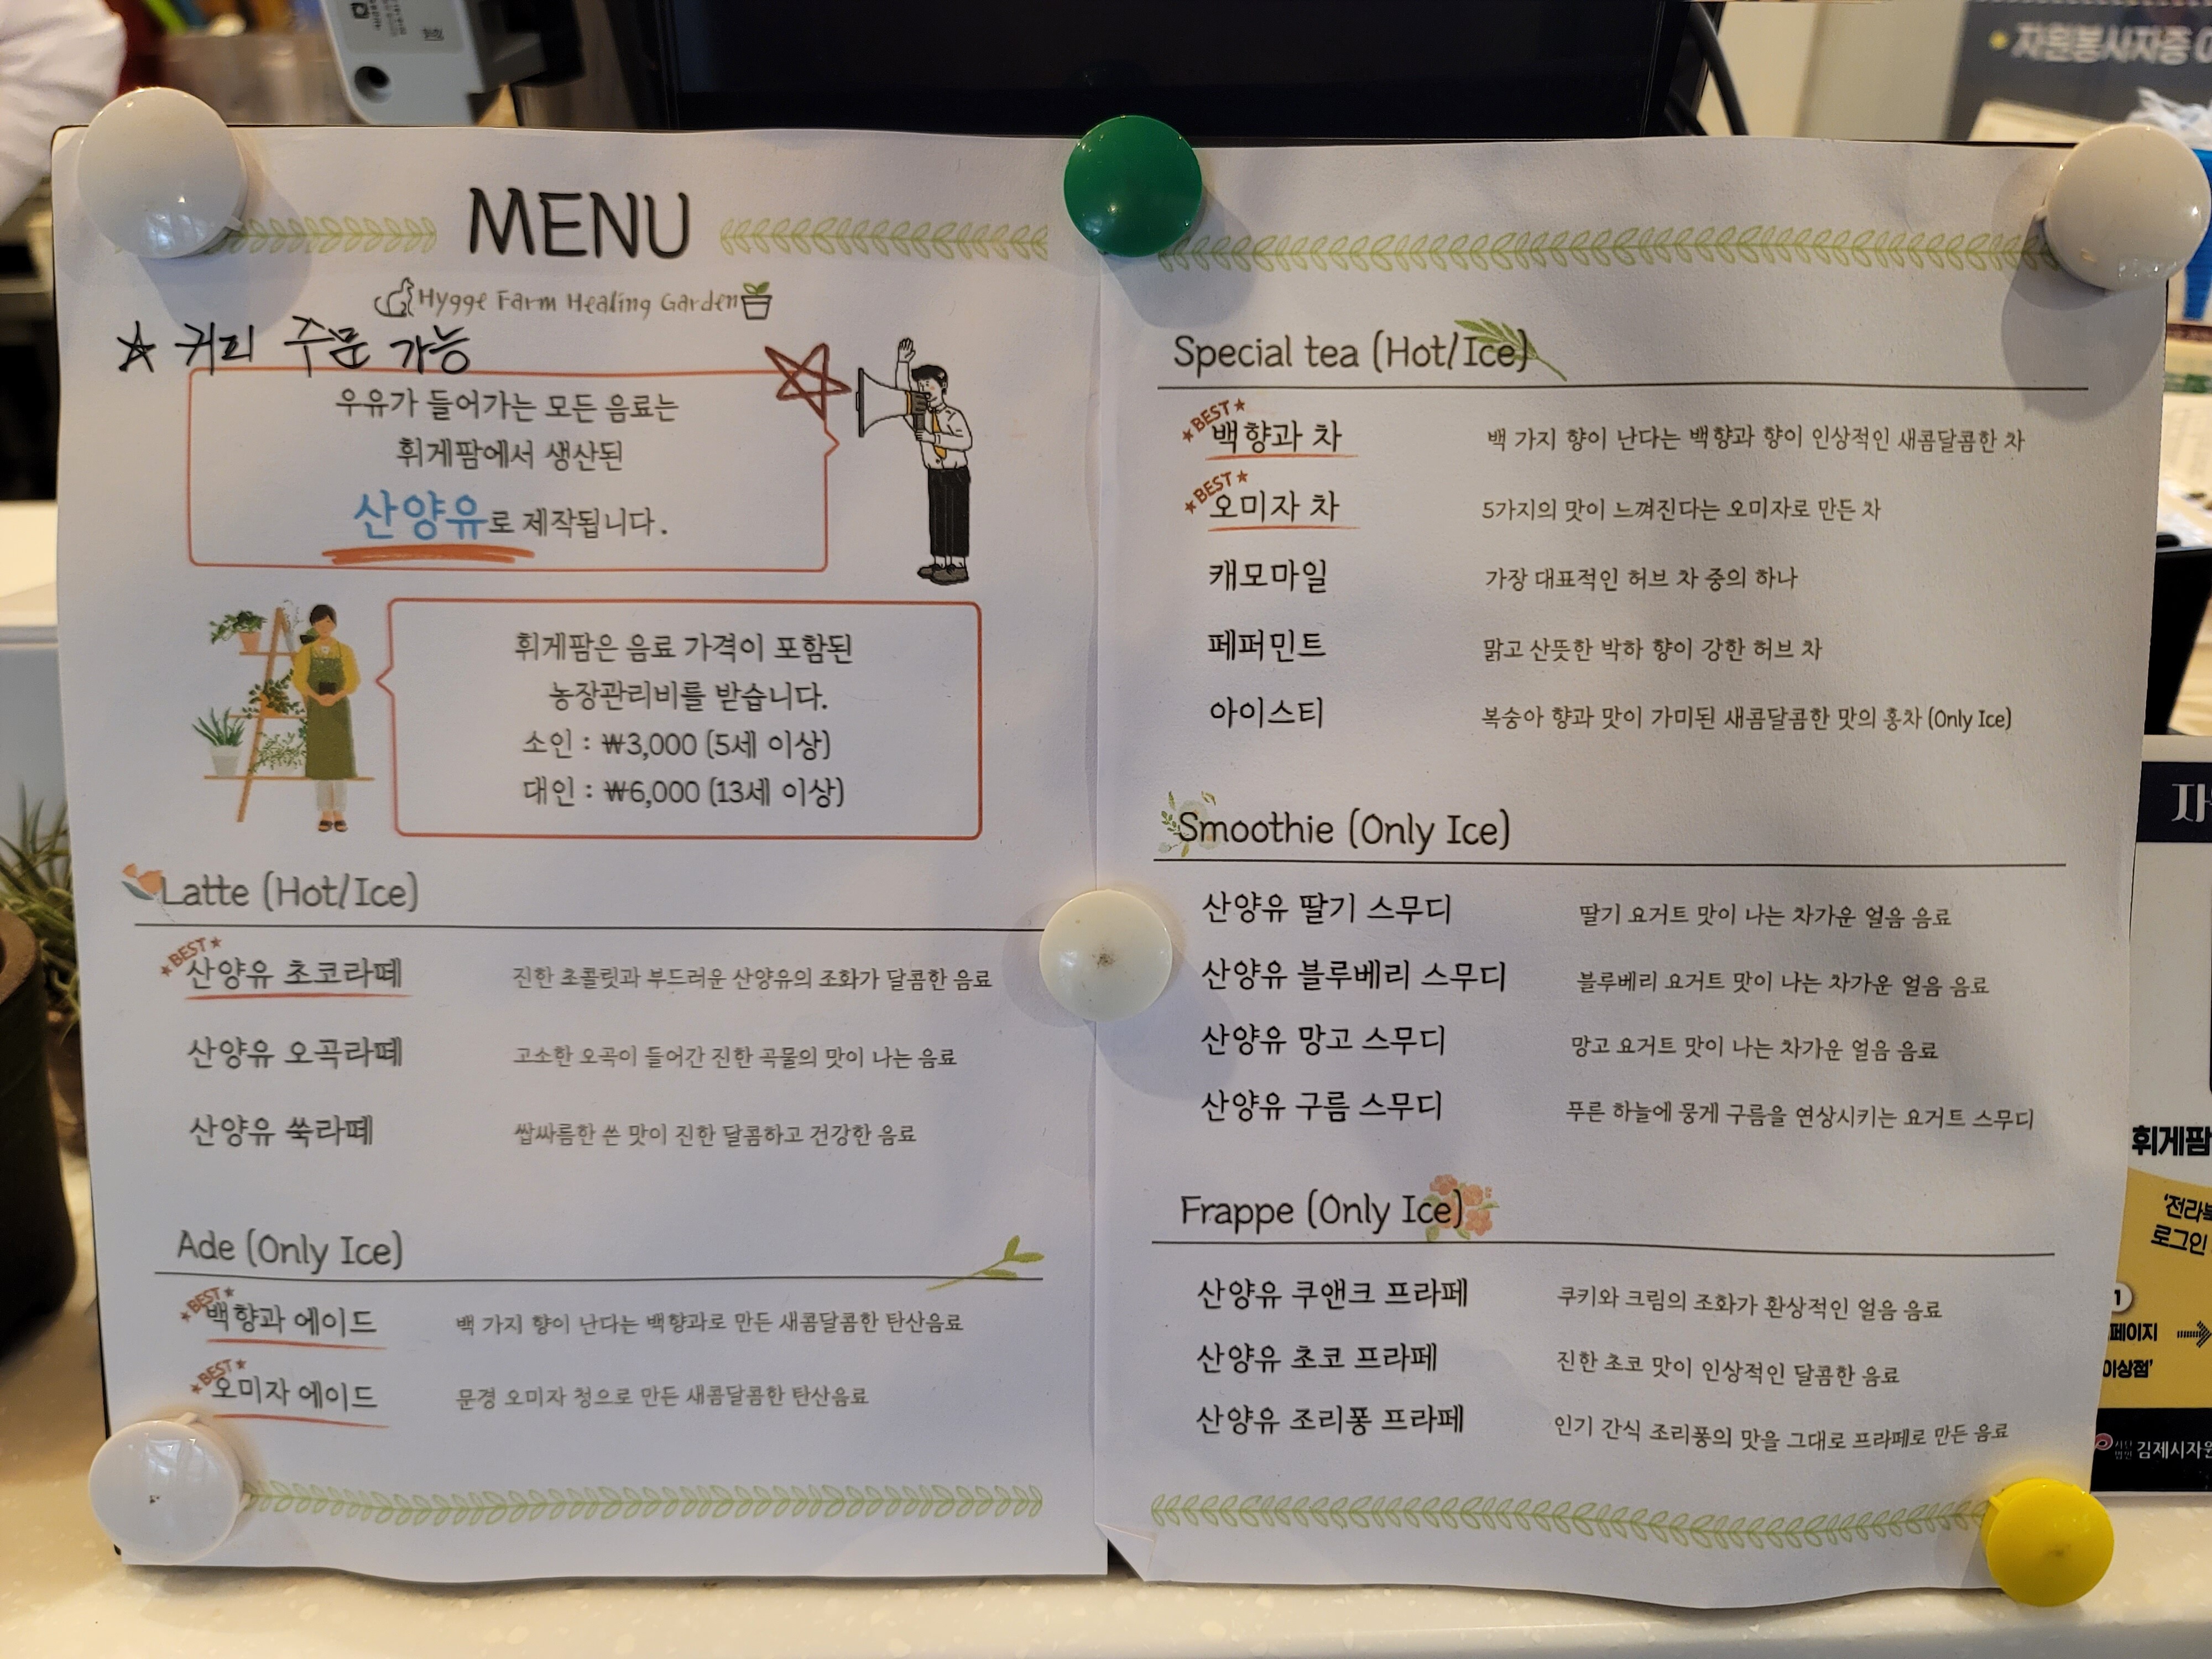 MENU
Hygge Farm Healing Garden
☆ 커피 주문 가능
우유가 들어가는 모든 음료는
휘게팜에서 생산된
산양유로 제작됩니다.
휘게팜은 음료 가격이 포함된
농장관리비를 받습니다.
소인 : ₩3,000 (5세 이상)
대인 : ₩6,000 (13세 이상)
Latte (Hot/Ice)
★BEST★
산양유 초코라떼 진한 초콜릿과 부드러운 산양유의 조화가 달콤한 음료
산양유 오곡라떼 고소한 오곡이 들어간 진한 곡물의 맛이 나는 음료
산양유 쑥라떼 쌉싸름한 쓴 맛이 진한 달콤하고 건강한 음료
Ade (Only Ice)
★BEST★
백향과 에이드 백 가지 향이 난다는 백향과로 만든 새콤달콤한 탄산음료
★BEST★
오미자 에이드 문경 오미자 청으로 만든 새콤달콤한 탄산음료
Special tea (Hot/Ice)
★BEST★
백향과 차 백 가지 향이 난다는 백향과 향이 인상적인 새콤달콤한 차
★BEST★
오미자 차 5가지의 맛이 느껴진다는 오미자로 만든 차
캐모마일 가장 대표적인 허브 차 중의 하나
페퍼민트 맑고 산뜻한 박하 향이 강한 허브 차
아이스티 복숭아 향과 맛이 가미된 새콤달콤한 맛의 홍차 (Only Ice)
Smoothie (Only Ice)
산양유 딸기 스무디 딸기 요거트 맛이 나는 차가운 얼음 음료
산양유 블루베리 스무디 블루베리 요거트 맛이 나는 차가운 얼음 음료
산양유 망고 스무디 망고 요거트 맛이 나는 차가운 얼음 음료
산양유 구름 스무디 푸른 하늘에 뭉게 구름을 연상시키는 요거트 스무디
Frappe (Only Ice)
산양유 쿠앤크 프라페 쿠키와 크림의 조화가 환상적인 얼음 음료
산양유 초코 프라페 진한 초코 맛이 인상적인 달콤한 음료
산양유 조리퐁 프라페 인기 간식 조리퐁의 맛을 그대로 프라페로 만든 음료
자원봉사자증
휘게팜
'전라북
로그인
1
페이지
이상점'
김제시자원